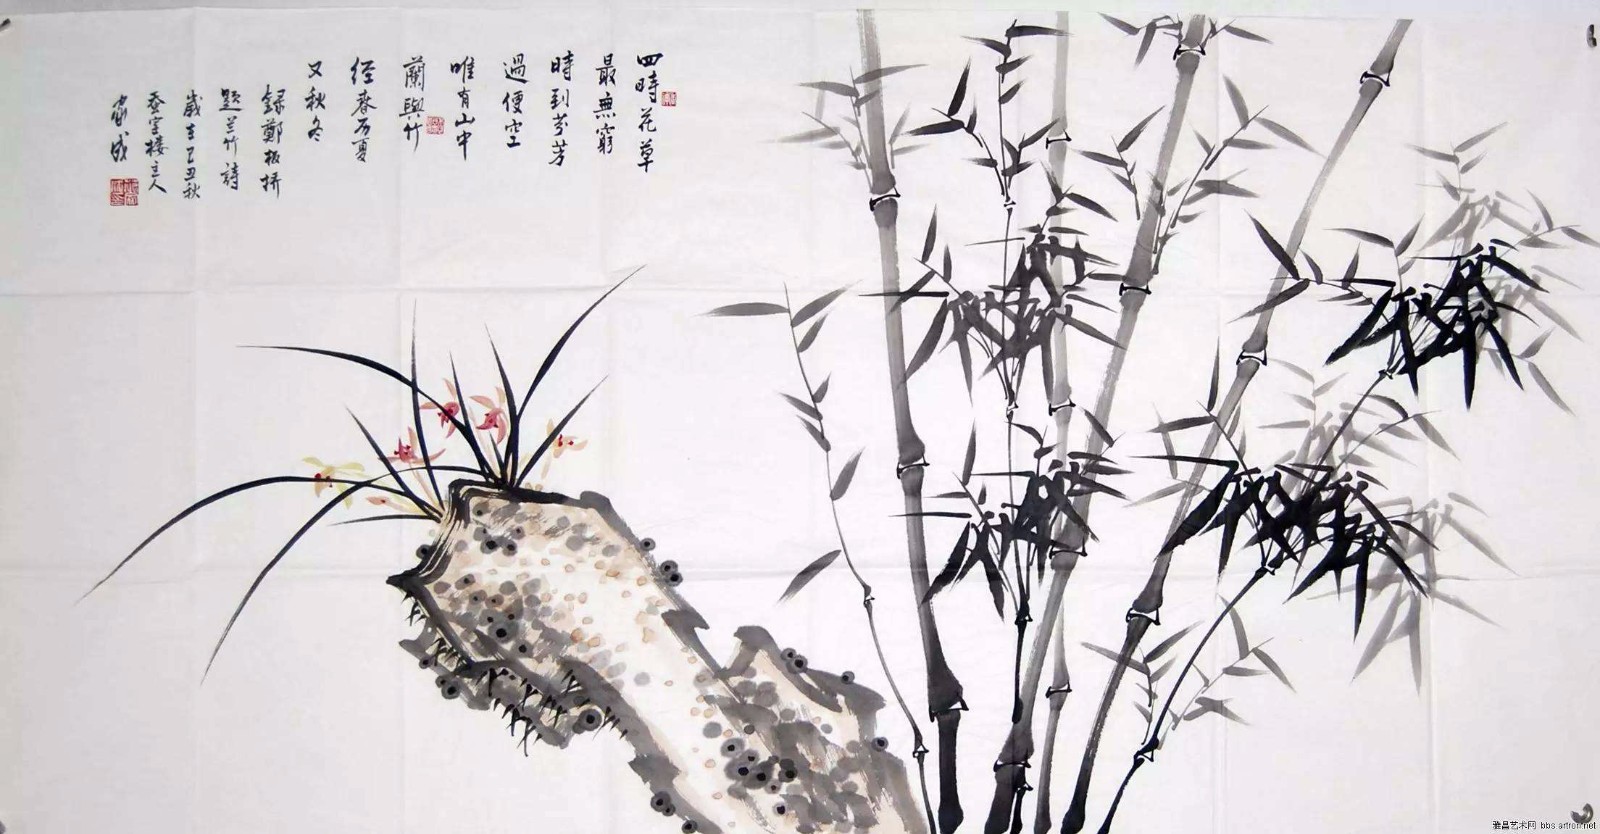 四時花草
最無窮
時到芬芳
過便空
唯有山中
蘭與竹
经春历夏
又秋冬
録鄭板桥
题兰竹詩
歲在己丑秋
主人
雅昌艺术网 bbs.artron.net